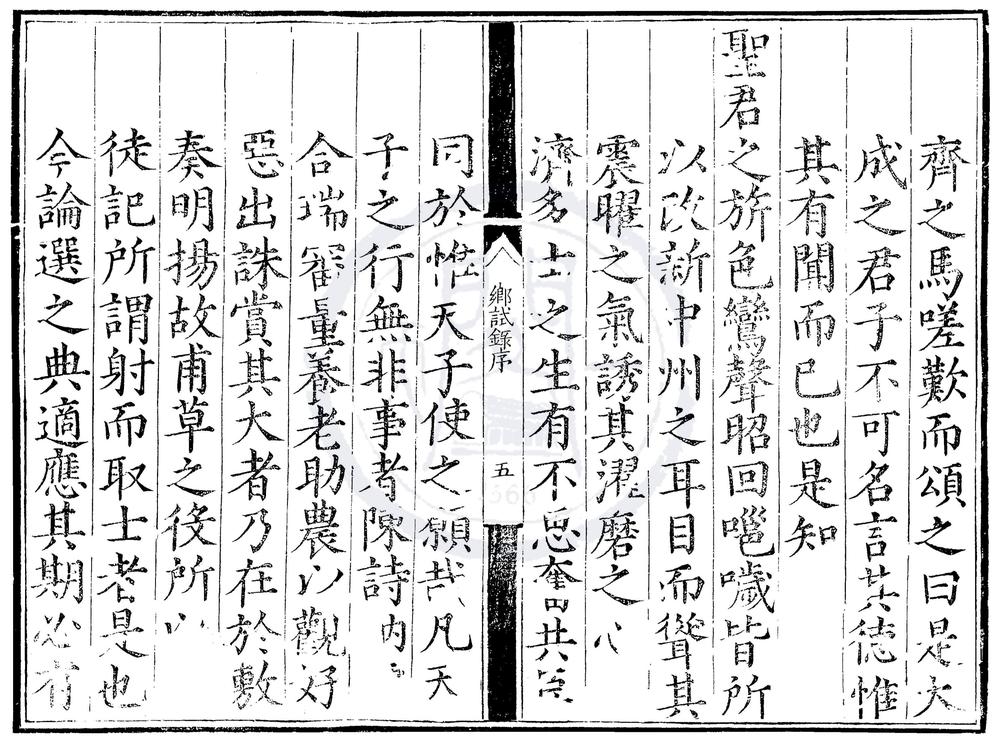 齊之馬嗟歎而頌之曰是大
成之君子不可名言其德惟
其有聞而已也是知
聖君之旂色鸞聲昭回噰噦皆所
以改新中州之耳目而聳其
震曜之氣誘其濯磨之心
濟多士之生有不思奮共
鄉試錄序
五
同於惟天子使之願哉凡天
子之行無非事者陳詩內
合瑞審量養老助農以觀好
惡出誅賞其大者乃在於敷
奏明揚故甫草之後所以
徒記所謂射而取士者是也
今論選之典適應其期必有